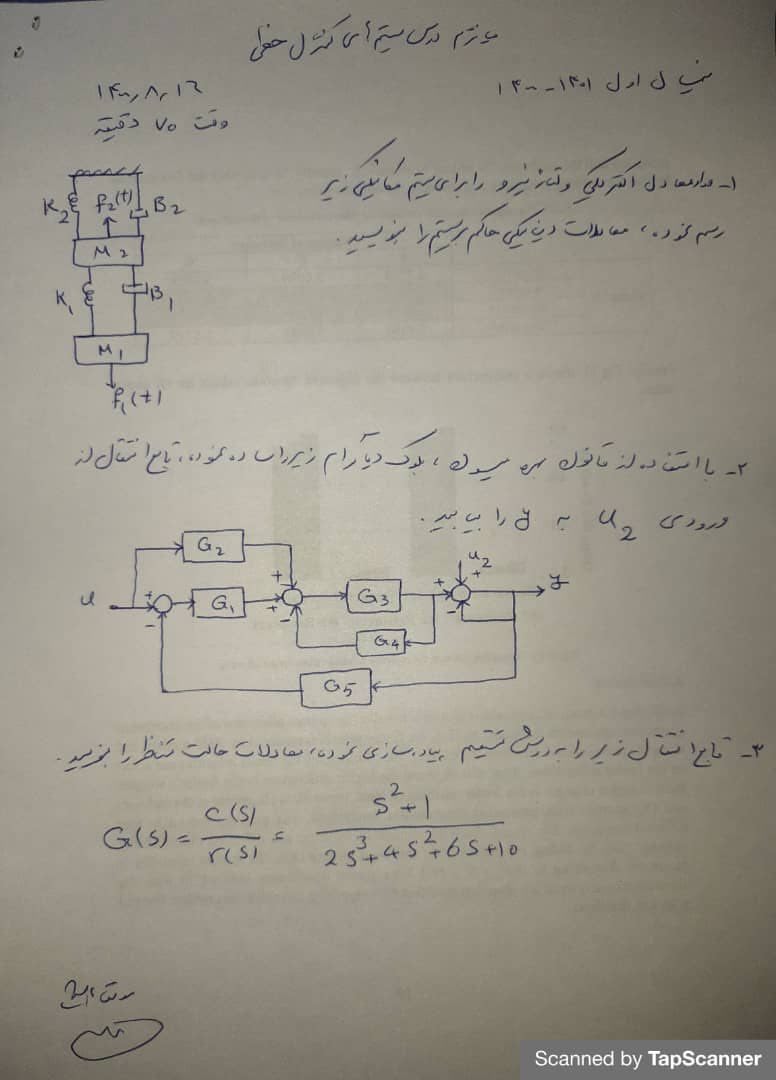 میانترم درس سیستم های کنترل خطی
نیمسال اول ۱۴۰۱-۱۴۰۰
۱۴۰۰,۸,۱۶
وقت ۷۵ دقیقه
۱- مدار معادل الکتریکی و تناظر نیرو را برای سیستم مکانیکی زیر
رسم نموده، معادلات دینامیکی حاکم بر سیستم را بنویسید.
K2 f2(t) B2
M2
K1 B1
M1
f1(t)
۲- با استفاده از قانون بهره میسون، بلوک دیاگرام زیر را ساده نموده، تابع انتقال از
ورودی u2 به y را بیابید.
G2
u2
u + - G1 + + - G3 + + - y
G4
G5
۳- تابع انتقال زیر را به روش مستقیم پیاده سازی نموده، معادلات حالت متناظر را بنویسید.
G(s) = c(s)/r(s) = s²+1 / 2s³+4s²+6s+10
Scanned by TapScanner